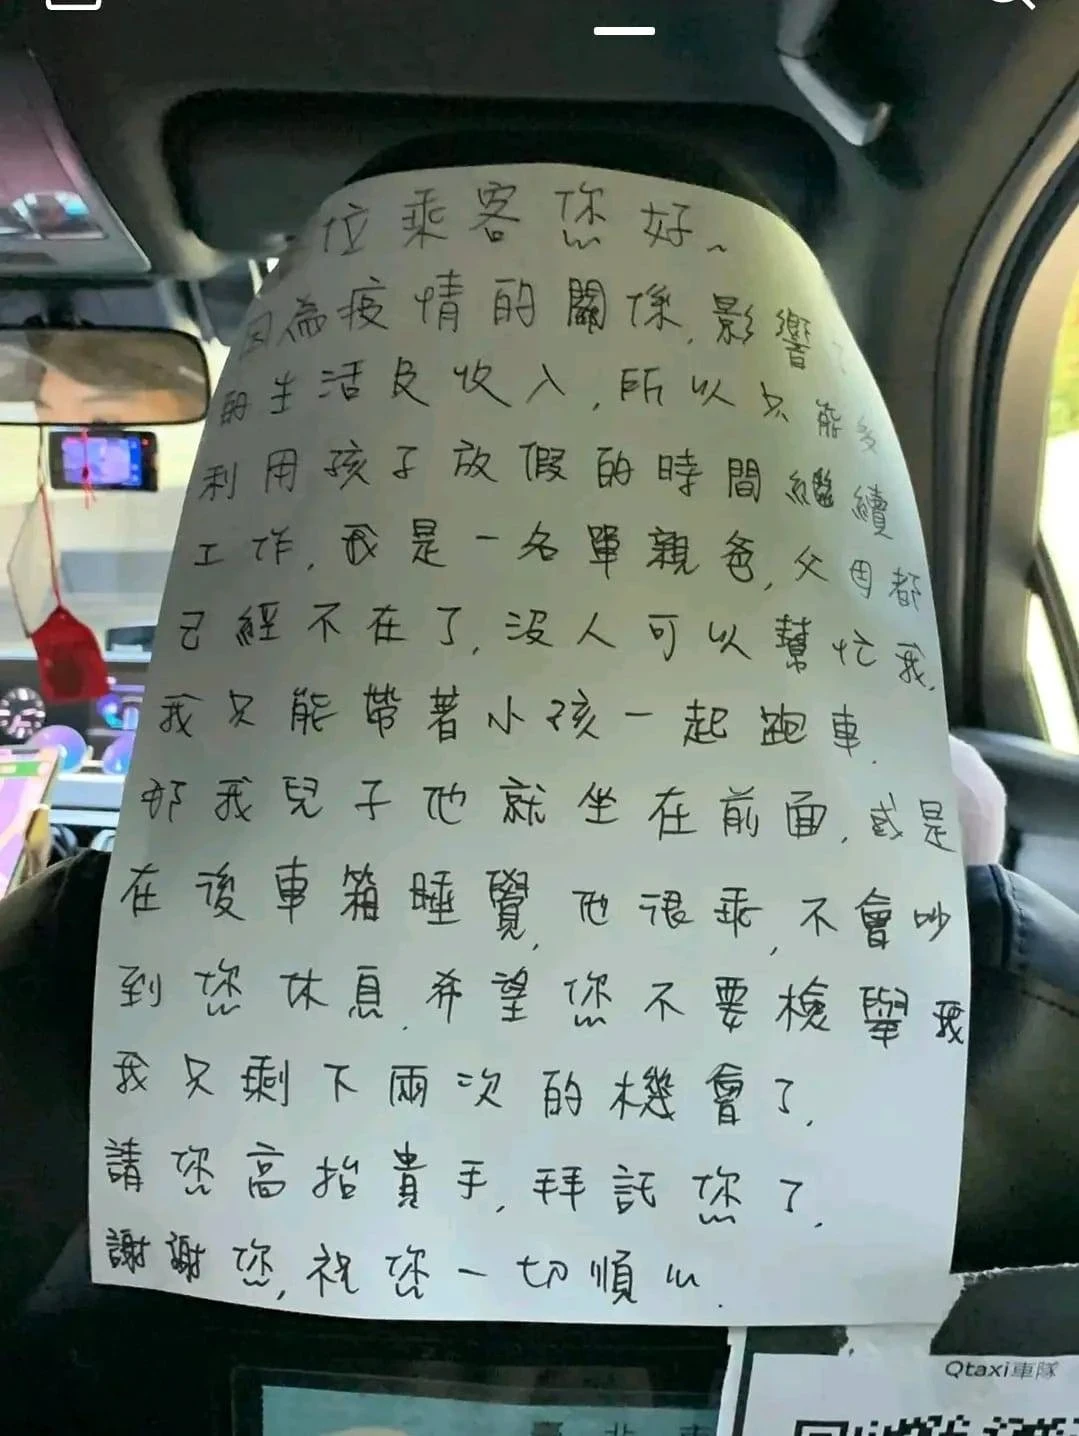 位乘客您好~
因為疫情的關係,影響了
的生活及收入,所以只能多
利用孩子放假的時間繼續
工作,我是一名單親爸,父母都
已經不在了,沒人可以幫忙我,
我只能帶著小孩一起跑車.
那我兒子他就坐在前面,或是
在後車箱睡覺,他很乖,不會吵
到您休息,希望您不要檢舉我
我只剩下兩次的機會了,
請您高抬貴手,拜託您了,
謝謝您,祝您一切順心.
Qtaxi車隊
臺北市